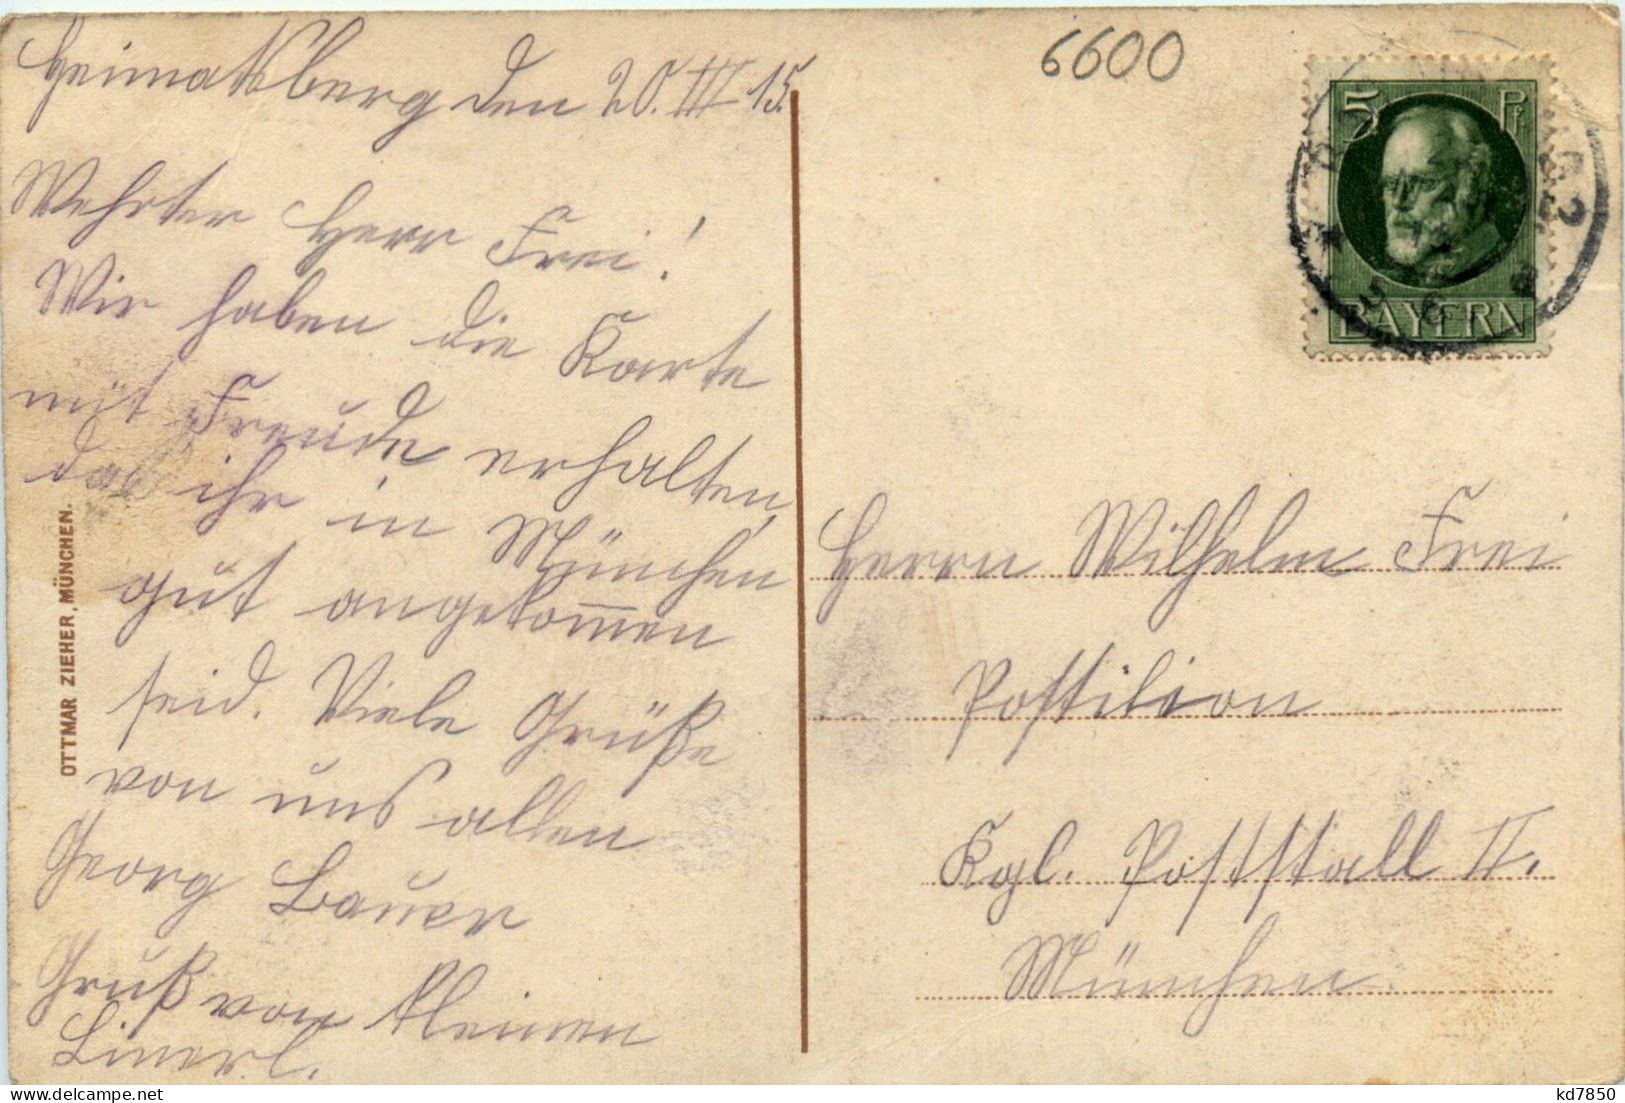 6600
5 Pf
BAYERN
Heimatsberg den 20. III 15.
Wehrter Herr Frei!
Wir haben die Karte
mit Freude erhalten,
das ihr in München
gut angekom̅en
seid. Viele Grüße
von uns allen
Georg Bauer
Gruß von kleinen
OTTMAR ZIEHER, MÜNCHEN.
Herrn Wilhelm Frei
Postilion
Kgl. Poststall II.
München.
kd7850